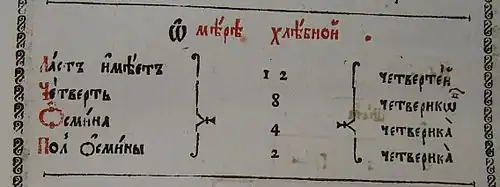 Ѿ мѣ́рѣ хлѣ́бной .
Ла́стъ и҆мѣ́етъ 12 четверте́й
Че́тверть 8 четверикѡ́въ
Ѻ҆сми́на 4 четверика̀
Пол̾ ѻ҆сми́ны 2 четверика̀